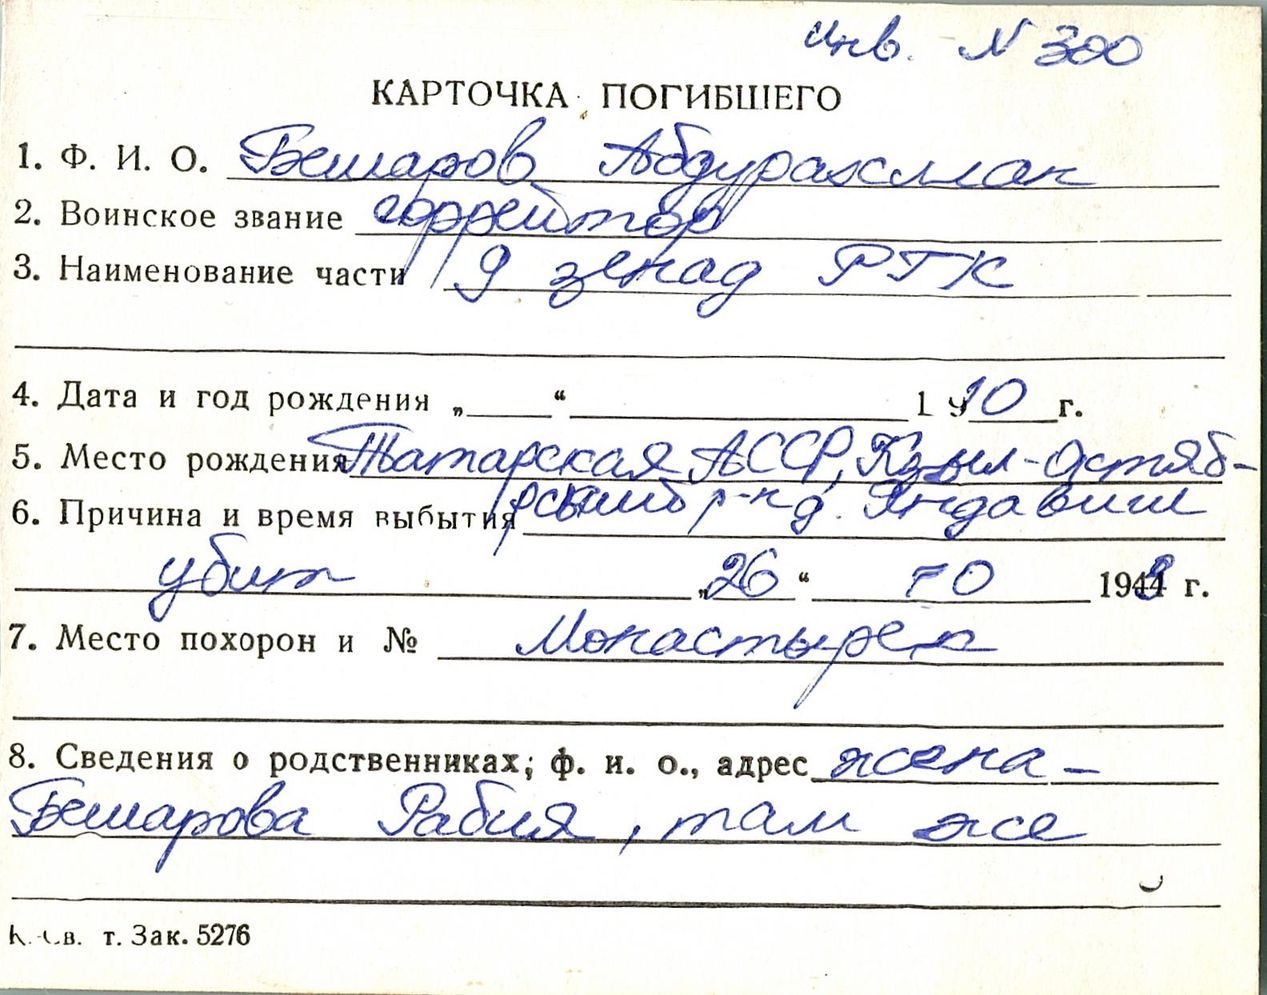 инв. N 300
КАРТОЧКА ПОГИБШЕГО
1. Ф. И. О. Бешаров Абдурахман
2. Воинское звание ефрейтор
3. Наименование части 9 зенад РГК
4. Дата и год рождения „ “ 1910 г.
5. Место рождения Татарская АССР, Кзыл-Октяб-
рьский р-н д. Яндавищ
6. Причина и время выбытия
убит „26“ 10 1943 г.
7. Место похорон и № Монастырек
8. Сведения о родственниках; ф. и. о., адрес жена -
Бешарова Рабия, там же
т. Зак. 5276